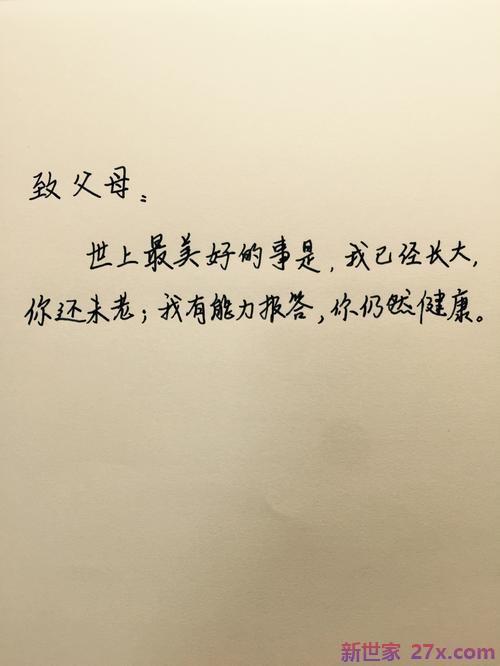 致父母:
世上最美好的事是,我已经长大,
你还未老;我有能力报答,你仍然健康。
新世家 27x.com